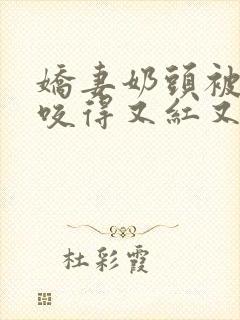 嬌妻奶頭被
咬得又紅又
杜彩霞